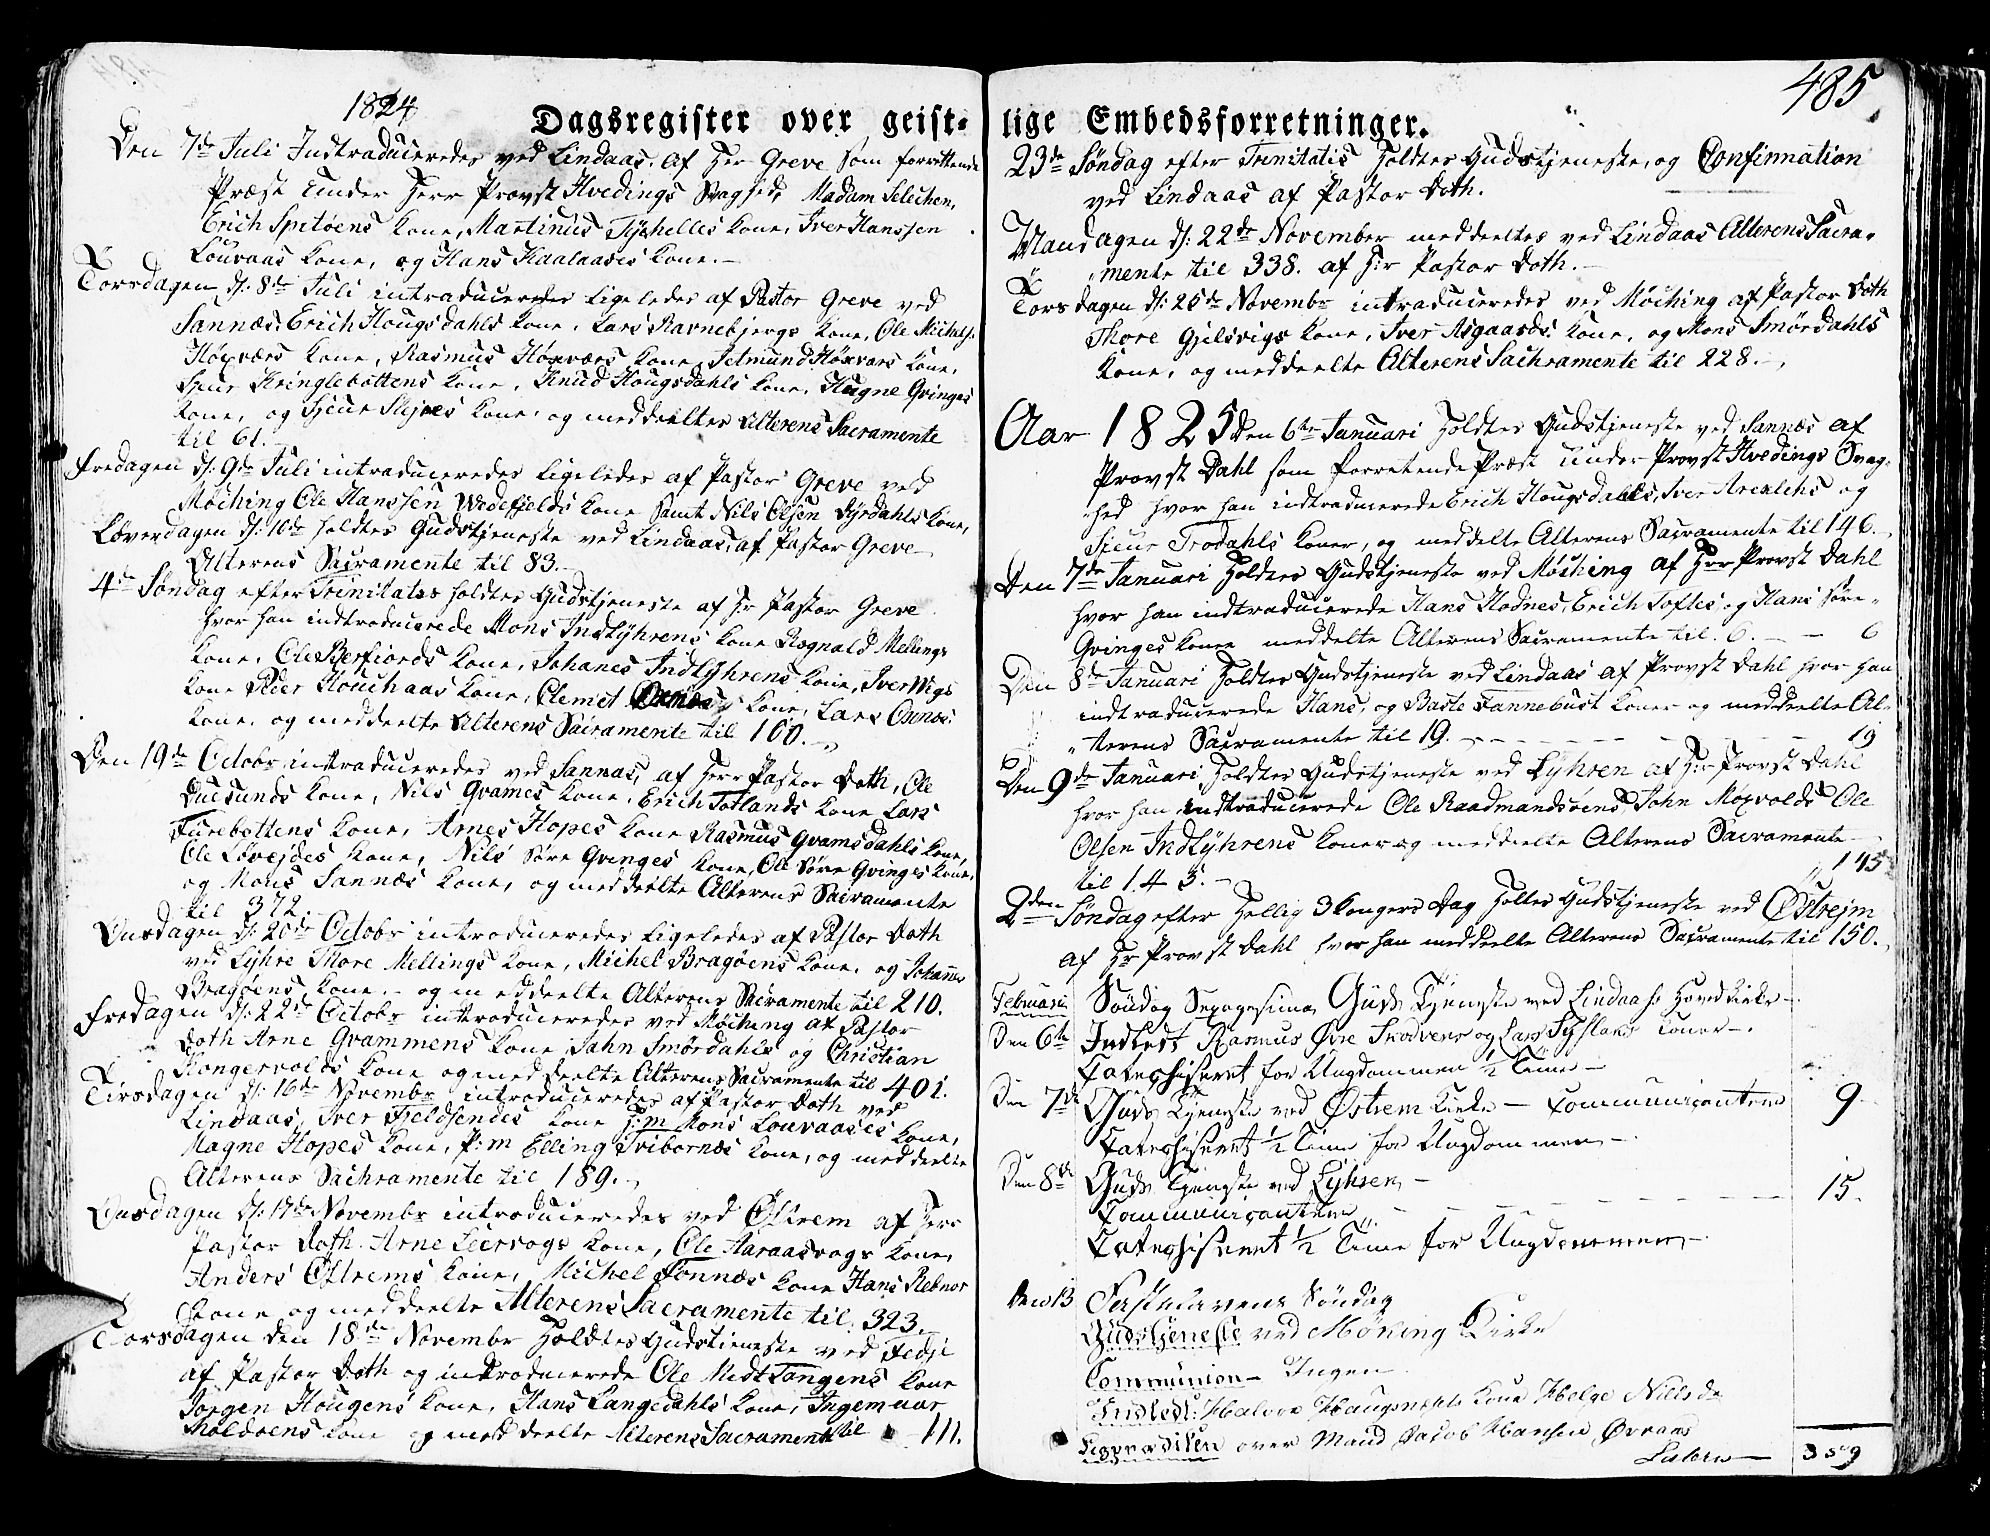 1824
Dagsregister over geist-
Den 7de Juli Indtraduceredes ved Lindaas. af Her Greve som forrettende
Præst under Herr Provst Hvedings Svaghed, Madam Selechen,
Erich Spitøens Kone, Martinus Fyshelles Kone, Iver Hanssen
Louvaas Kone, og Hans Kaalaases Kone.
Torsdagen d: 8de Juli intraduceredes ligeledes af Pastor Greve ved
Sannæs, Erich Hougsdahls Kone, Lars Ravnebjergs Kone, Ole Michels:
Høxværs Kone, Rasmus Høxværs Kone, Setmund Høxvars Kone,
Sjeur Kringlebottens Kone, Knud Hougsdahls Kone, Hugne Qvinges
Kone, og Sjeur Skjnes Kone, og meddeeltes Alterens Sacramente
til 61.
Fredagen d: 9de Juli intraduceredes ligeledes af Pastor Greve ved
Møching Ole Hanssen Wedefjelds Kone samt Nils Olsen Dyrdahls Kone,
Løverdagen d: 10de holdtes Gudstjeneste ved Lindaas, af Pastor Greve
Alterens Sacramente til 83.
4de Søndag efter Trinitates holdtes Gudstjeneste af Hr Pastor Greve
hvor han indtraducerede Mons IndLyhrens Kone Rognald Mellings
Kone, Ole Berfiords Kone, Johanes IndLyhrens Kone, Iver Wigs
Kone Peer Kouchaas Kone, Clemet Kone, Lars Oxnæs:
Kone, og meddeelte Alterens Sacramente til 100.
Den 19de Octobr intraduceredes ved Sannæs, af Herr Pastor Doth, Ole
Duesunds Kone, Nils Qvames Kone, Erich Totlands Kone Lars
Furebottens Kone, Arnes Hopes Kone Rasmus Qvamsdahls Kone,
Ole Løvejdes Kone, Nils Søre Qvinges Kone, Ole Søre Qvinges Kone,
og Mons Sannæs Kone, og meddeelte Alterens Sacramente
til 372.
Onsdagen d: 20de Octobr introduceredes ligeledes af Pastor Doth
ved Lyhre Thore Mellings Kone, Michel Bragøens Kone, og Johannes
Bragøens Kone. og meddeelte Alterens Sacramente til 210.
Fredagen d: 22de Octobr introduceredes ved Møching af Pastor
Doth Arne Qvammens Kone, Jahn Smørdahls og Christian
Kongervolds Kone og meddeelte Alterens Sacramente til 401.
Tirsdagen d: 16de Novembr introduceredes af Pastor Doth ved
Lindaas, Iver Fjeldsendes Kone H:m Mons Louvaases Kone,
Magne Hopes Kone, P:m Elling Tvibornæs Kone, og meddeelte
Alterens Sachramente til 189.
Onsdagen d: 17de Novembr introduceredes ved Østrem af Herr
Pastor Doth. Arne Leervogs Kone, Ole Aaraasvogs Kone,
Anders Østrems Kone, Michel Fonnæs Kone Hans Rebnor
Kone og meddeelte Alterens Sacramente til 323.
Torsdagen den 18de Novembr Holdtes Gudstieneste ved Fedje
af Pastor Doth og indtroducerede Ole Midt Tangens Kone
Jørgen Hougens Kone, Hans Langedahls Kone, Ingemaar
Moldøens Kone og meddeelte Alterens Sacramente til 111.
485
lige Embedsforretninger.
23de Søndag efter Trinitatis Holdtes Gudstjeneste, og Confirmation
ved Lindaas af Pastor Doth.
Mandagen d: 22de November meddeeltes ved Lindaas Alterens Sacra-
mente til 338. af Hr Pastor Doth.
Torsdagen d: 25de Novembr intraduceredes ved Møching af Pastor Doth
Thore Gjelsvigs Kone, Iver Asgaards Kone, og Mons Smørdahls
Kone, og meddeelte Alterens Sachramente til 228.
Aar 1825 Den 6te Januari Holdtes Gudstjeneste ved Sannæs af
Provst Dahl som Forretende Præst under Provst Hvedings Svag-
hed hvor han indtraducerede Erich Hougsdahls, Iver Arexlehs og
Sjeur Trodahls Koner, og meddelte Alterens Sacramente til 146.
Den 7de Januari Holdtes Gudstjeneste ved Møching af Herr Provst Dahl
hvor han indtraducerede Hans Hodnes, Erich Toftes, og Hans Søre-
Qvinges Koner meddelte Alterens Sacramente til. 6. 6
Den 8de Januari Holdtes Gudstjeneste ved Lindaas af Provst Dahl hvor han
indtraducerede Hans, og Baste Fannebust Koner og meddeelte Al-
terens Sacramente til 19. 19
Den 9de Januari Holdtes Gudstjeneste ved Lyhren af Hr Provst Dahl
hvor han indtraducerede Ole Raadmandsøens, John Moxvolds Ole
Olsen IndLyhrens Koner og meddeelte Alterens Sacramente
til 145. 145
2den Søndag efter Hellig 3 Kongers Dag Holtes Gudstjeneste ved Østrejm
af Hr Provst Dahl hvor han meddeelte Alterens Sacramente til 150.
Februari Søndag Sexagesima, Guds Tjeneste ved Lindaas Hovedkirke
Den 6te Indledt Rasmus Øvre Skodvens og Lars Koner.
Catechiseret for Ungdommen ½ Time
Den 7de Guds Tjeneste ved Østrem Kirke - Communicantere 9
Catechiseret ½ Time for Ungdommen
Den 8de Guds Tjeneste ved Lyhren
Communicantere 15.
Catechiseret ½ Time for Ungdommen
Den 13 Fastelavens Søndag
Gudstjeneste ved Møking Kirke
Communion - Ingen
Indledt: Halvor Kone Helge Nilsda
Ligprædiken over Mand Jacob Hansen Øvraas
359